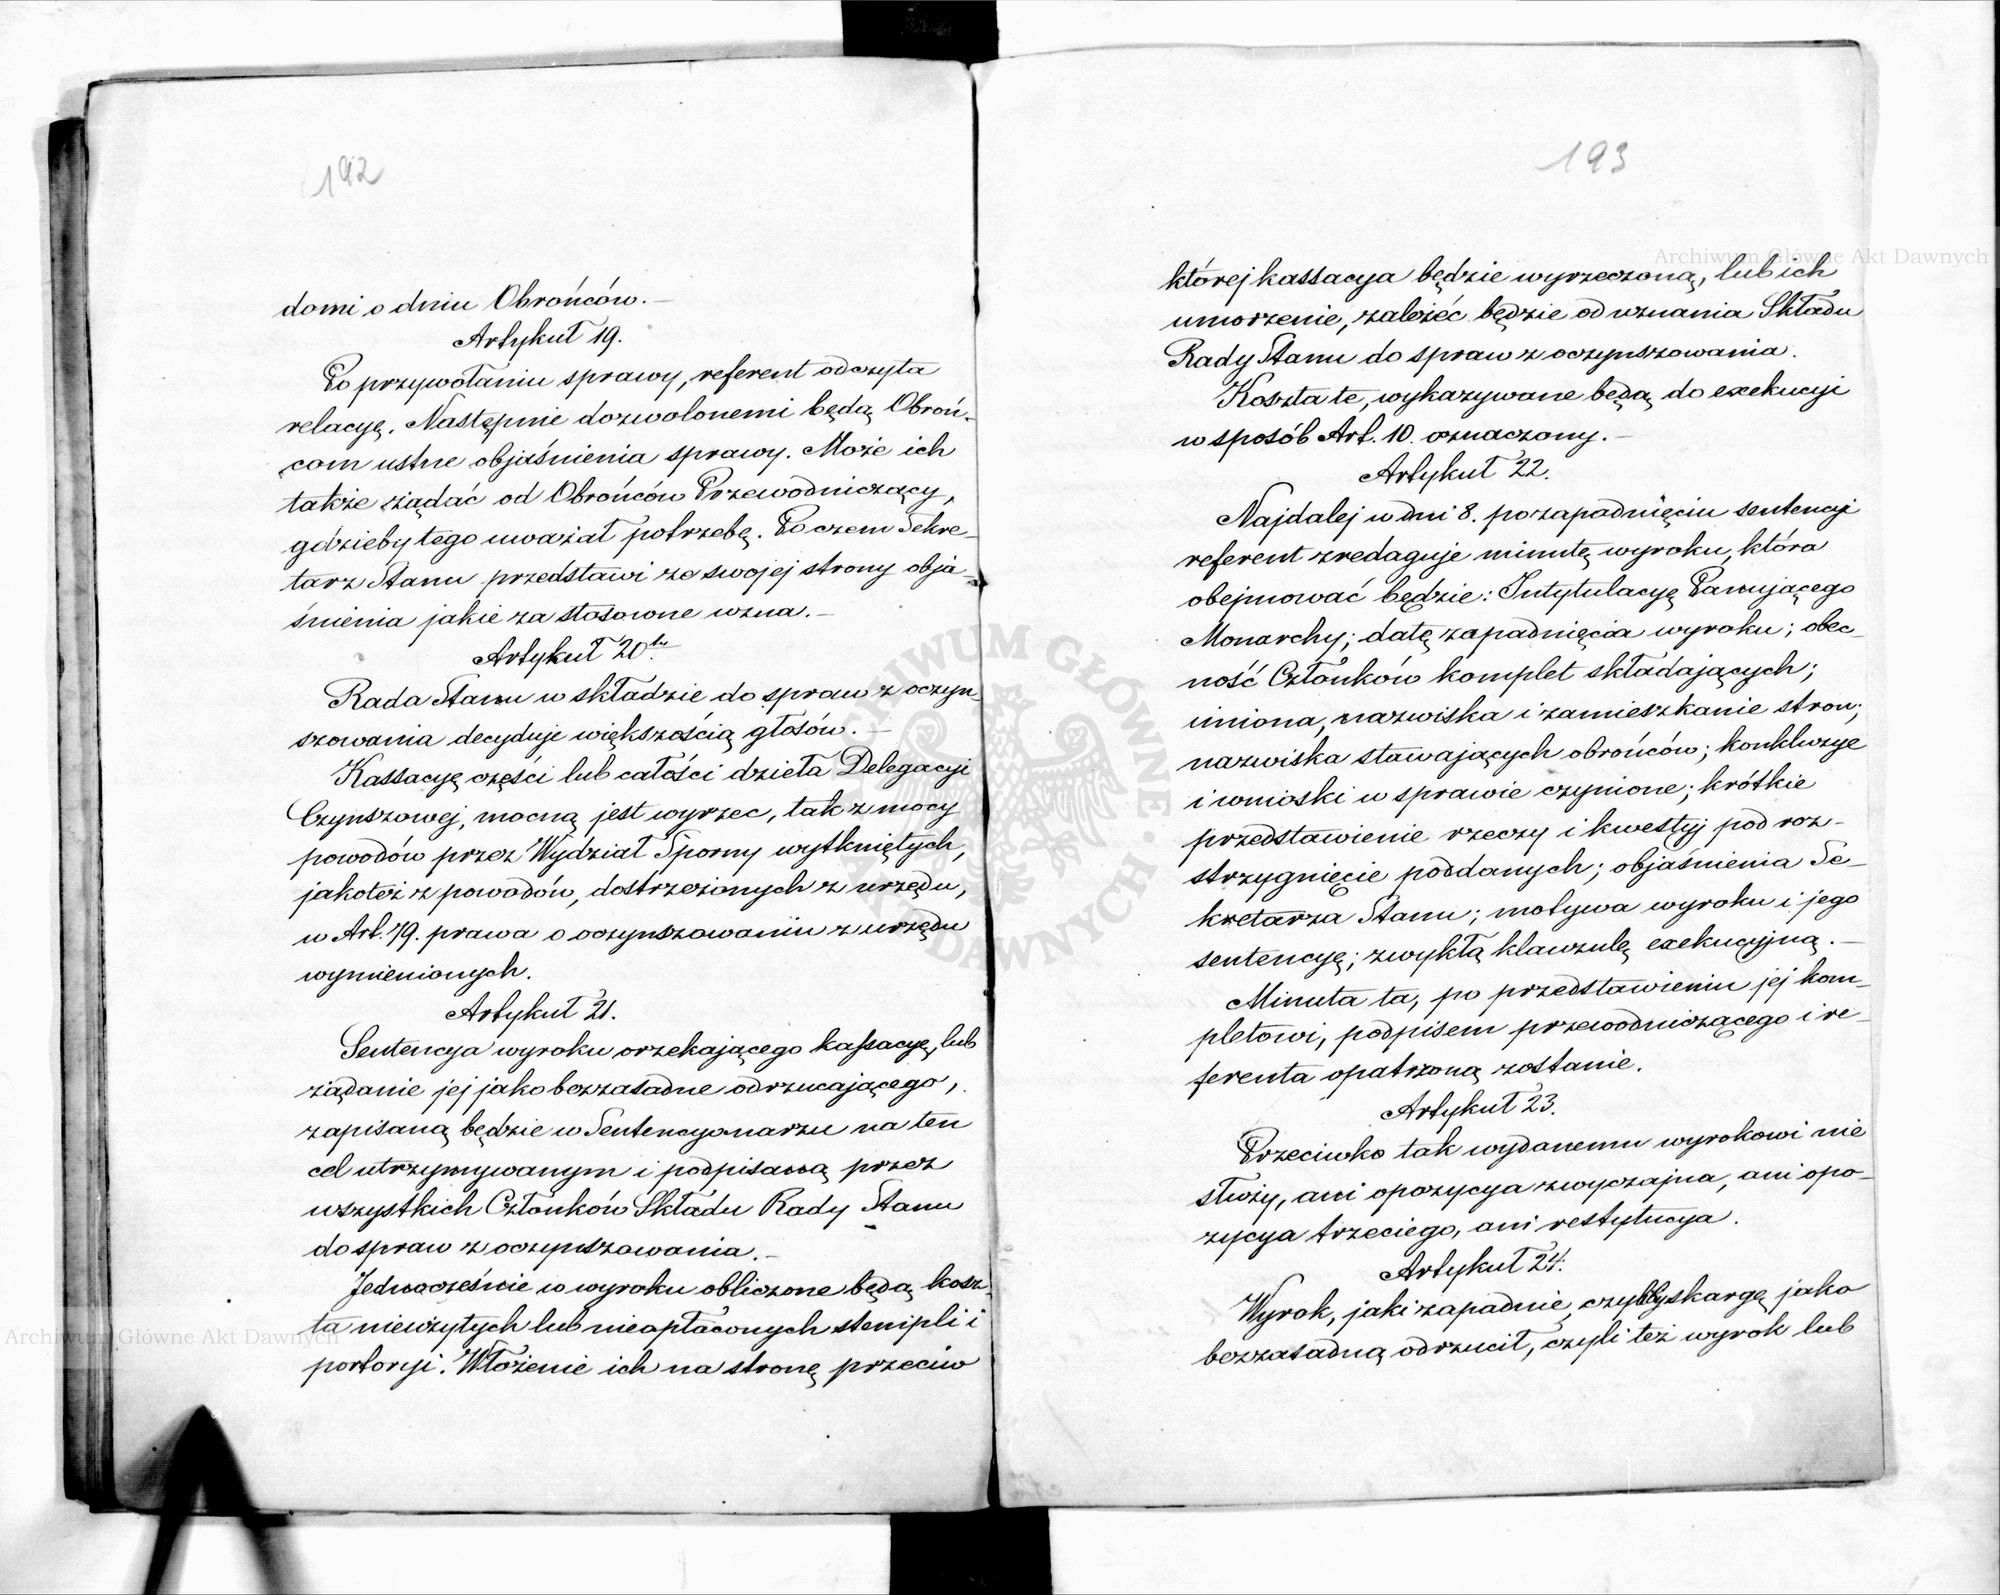 192
domi o dniu Obrońców.—
Artykuł 19.
Po przywołaniu sprawy, referent odczyta
relacyę. Następnie dozwolonemi będą Obroń-
com ustne objaśnienia sprawy. Może ich
także żądać od Obrońców Przewodniczący,
gdzieby tego uważał potrzebę. Poczem Sekre-
tarz Stanu przedstawi ze swojej strony obja-
śnienia jakie za stosowne uzna.—
Artykuł 20ty.
Rada Stanu w składzie do spraw z oczyn-
szowania decyduje większością głosów.—
Kassacyę części lub całości dzieła Delegacyi
Czynszowej, mocną jest wyrzec, tak z mocy
powodów przez Wydział Sporny wytkniętych,
jakoteż z powodów, dostrzeżonych z urzędu,
w Art. 79. prawa o oczynszowaniu z urzędu
wymienionych.
Artykuł 21.
Sentencya wyroku orzekającego kassacyę, lub
żądanie jej jako bezzasadne odrzucającego,
zapisaną będzie w Sentencyonarzu na ten
cel utrzymywanym i podpisaną przez
wszystkich Członków Składu Rady Stanu
do spraw z oczynszowania.—
Jednocześnie w wyroku obliczone będą kosz-
ta nieużytych lub nieopłaconych stempli i
portoryi. Włożenie ich na stronę przeciw
193
której kassacya będzie wyrzeczoną, lub ich
umorzenie, zależeć będzie od uznania Składu
Rady Stanu do spraw z oczynszowania.
Koszta te, wykazywane będą do exekucyi
w sposób Art. 10. oznaczony.—
Artykuł 22.
Najdalej w dni 8. po zapadnięciu sentencyi
referent zredaguje minutę wyroku, która
obejmować będzie: Intytulacyę Panującego
Monarchy; datę zapadnięcia wyroku; obec-
ność Członków komplet składających;
imiona, nazwiska i zamieszkanie stron;
nazwiska stawających obrońców; konkluzye
i wnioski w sprawie czynione; krótkie
przedstawienie rzeczy i kwestyj pod roz-
strzygnięcie poddanych; objaśnienia Se-
kretarza Stanu; motywa wyroku i jego
sentencyę; zwykłą klauzulę exekucyjną.—
Minuta ta, po przedstawieniu jej kom-
pletowi, podpisem przewodniczącego i re-
ferenta opatrzoną zostanie.
Artykuł 23.
Przeciwko tak wydanemu wyrokowi nie
służy, ani opozycya zwyczajna, ani opo-
zycya trzeciego, ani restytucya.
Artykuł 24.
Wyrok, jaki zapadnie, czyliby skargę jako
bezzasadną odrzucił, czyli też wyrok lub
Archiwum Główne Akt Dawnych
Archiwum Główne Akt Dawnych
ARCHIWUM GŁÓWNE AKT DAWNYCH